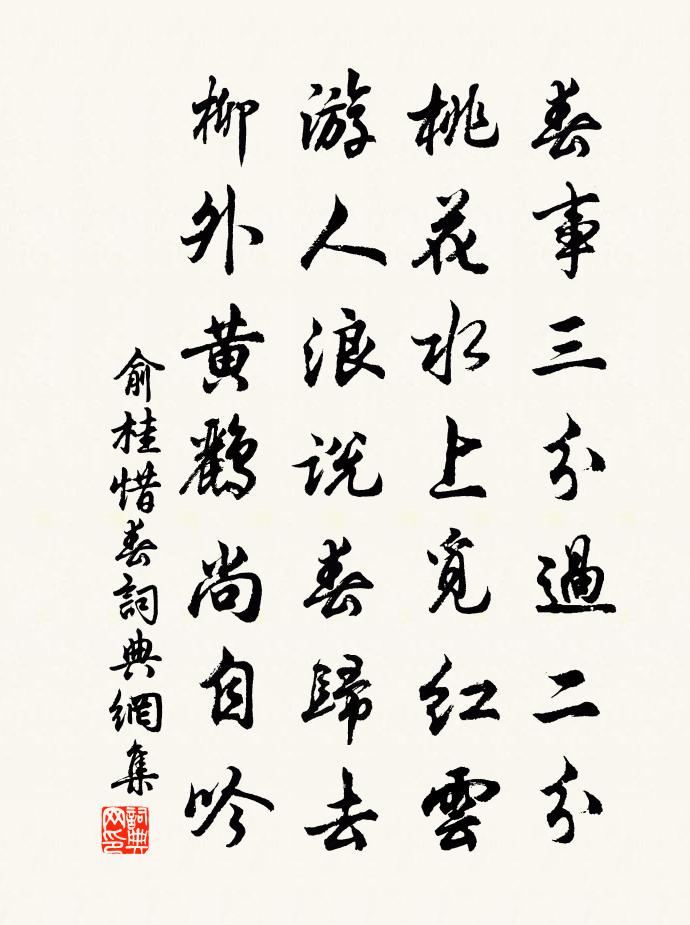 春事三分過二分
桃花水上覓紅雲
游人浪說春歸去
柳外黃鸝尚自吟
俞桂惜春詞典網集
詞典網印